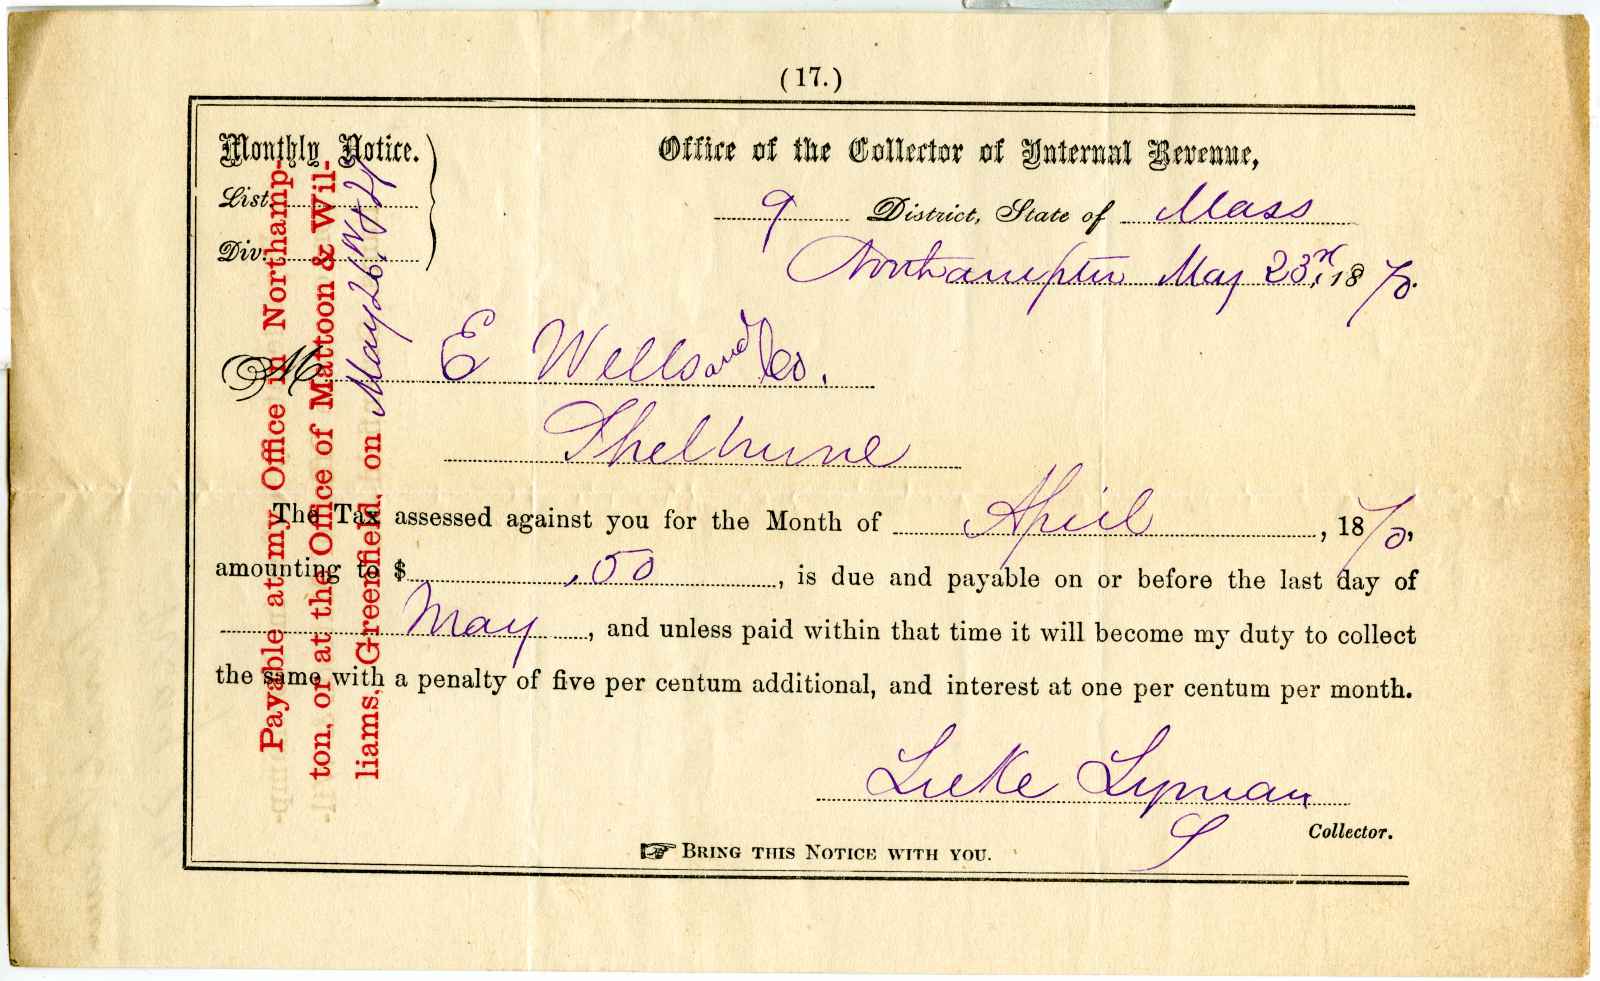 (17.)
Monthly Notice.
List
Div.
Office of the Collector of Internal Revenue,
9 District, State of Mass
Northampton May 23rd, 1870.
M E Wells and Co.
Shelburne
The Tax assessed against you for the Month of April, 1870,
amounting to $ .50, is due and payable on or before the last day of
May, and unless paid within that time it will become my duty to collect
the same with a penalty of five per centum additional, and interest at one per centum per month.
Luke Lyman
Collector.
☞ Bring this Notice with you.
Payable at my Office in Northamp-
ton, or at the Office of Mattoon & Wil-
liams, Greenfield, on May 26,